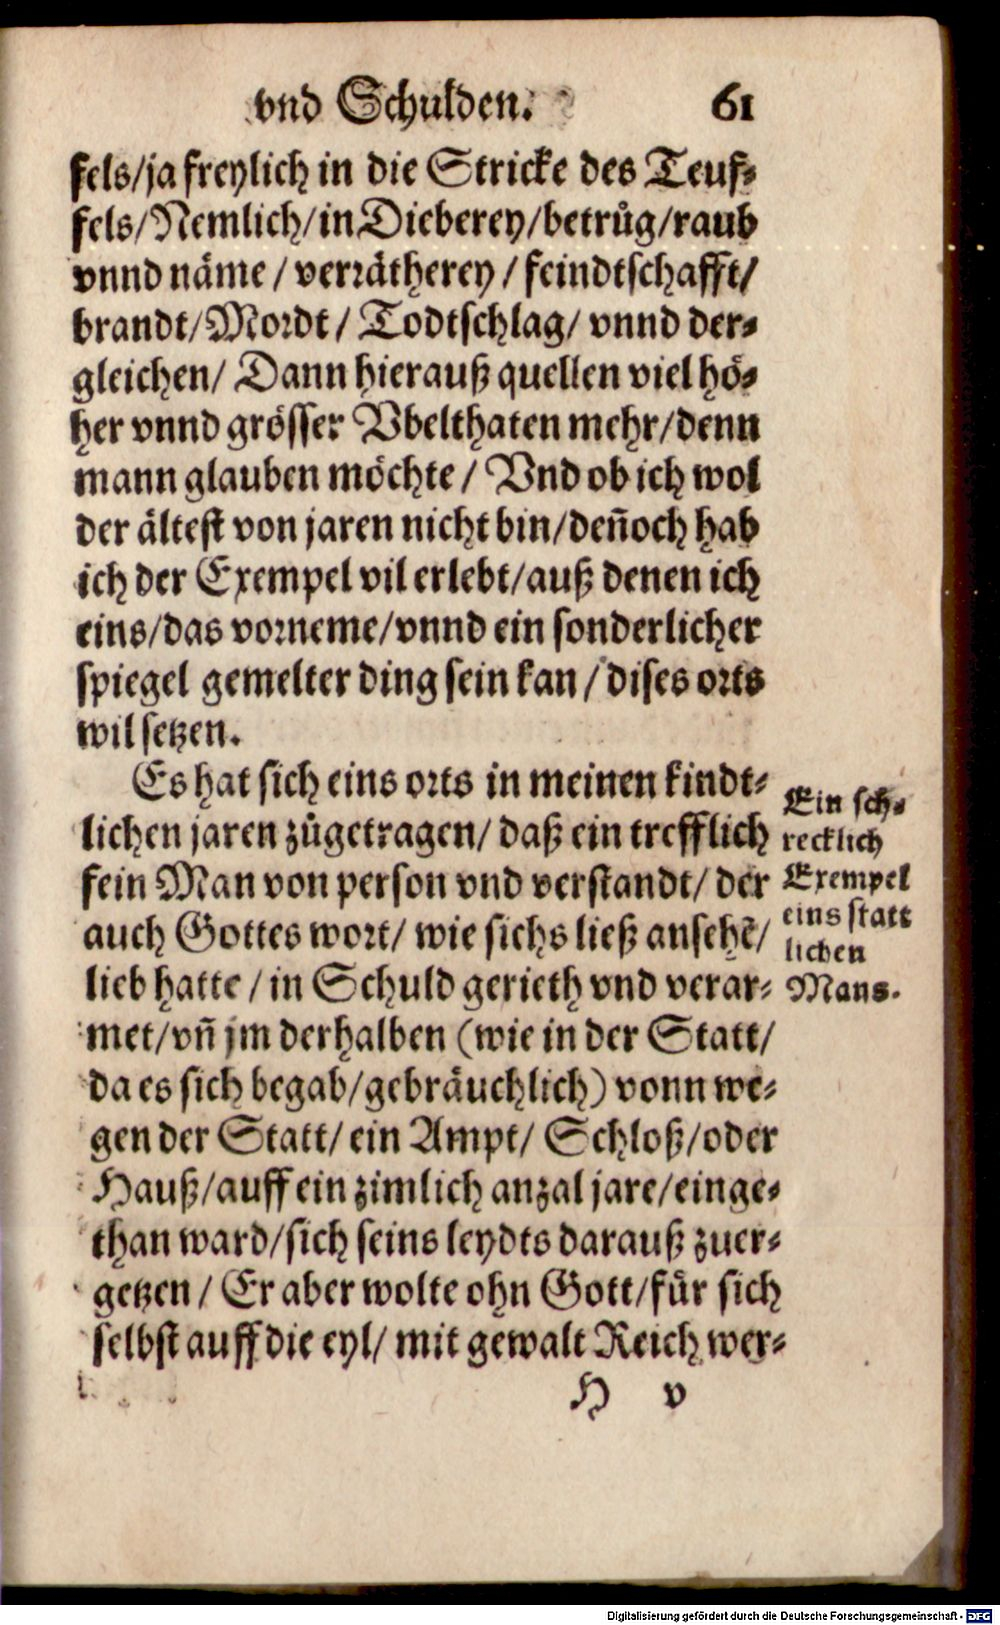 vnd Schulden. 61
fels/ja freylich in die Stricke des Teuf-
fels/Nemlich/in Dieberey/betrůg/raub
vnnd näme/ verrätherey/ feindtschafft/
brandt/Mordt/ Todtschlag/ vnnd der-
gleichen/ Dann hierauß quellen viel hö-
her vnnd grösser Vbelthaten mehr/denn
mann glauben möchte/ Vnd ob ich wol
der ältest von jaren nicht bin/deñoch hab
ich der Exempel vil erlebt/auß denen ich
eins/das vorneme/vnnd ein sonderlicher
spiegel gemelter ding sein kan/dises orts
wil setzen.
Es hat sich eins orts in meinen kindt-
lichen jaren zůgetragen/ daß ein trefflich
fein Man von person vnd verstandt/ der
auch Gottes wort/ wie sichs ließ ansehẽ/
lieb hatte/ in Schuld gerieth vnd verar-
met/vñ jm derhalben (wie in der Statt/
da es sich begab/gebräuchlich) vonn we-
gen der Statt/ ein Ampt/ Schloß/oder
Hauß/auff ein zimlich anzal jare/einge-
than ward/sich seins leydts darauß zuer-
getzen/ Er aber wolte ohn Gott/für sich
selbst auff die eyl/ mit gewalt Reich wer-
Ein sch-
recklich
Exempel
eins statt
lichen
Mans.
H v
Digitalisierung gefördert durch die Deutsche Forschungsgemeinschaft - DFG